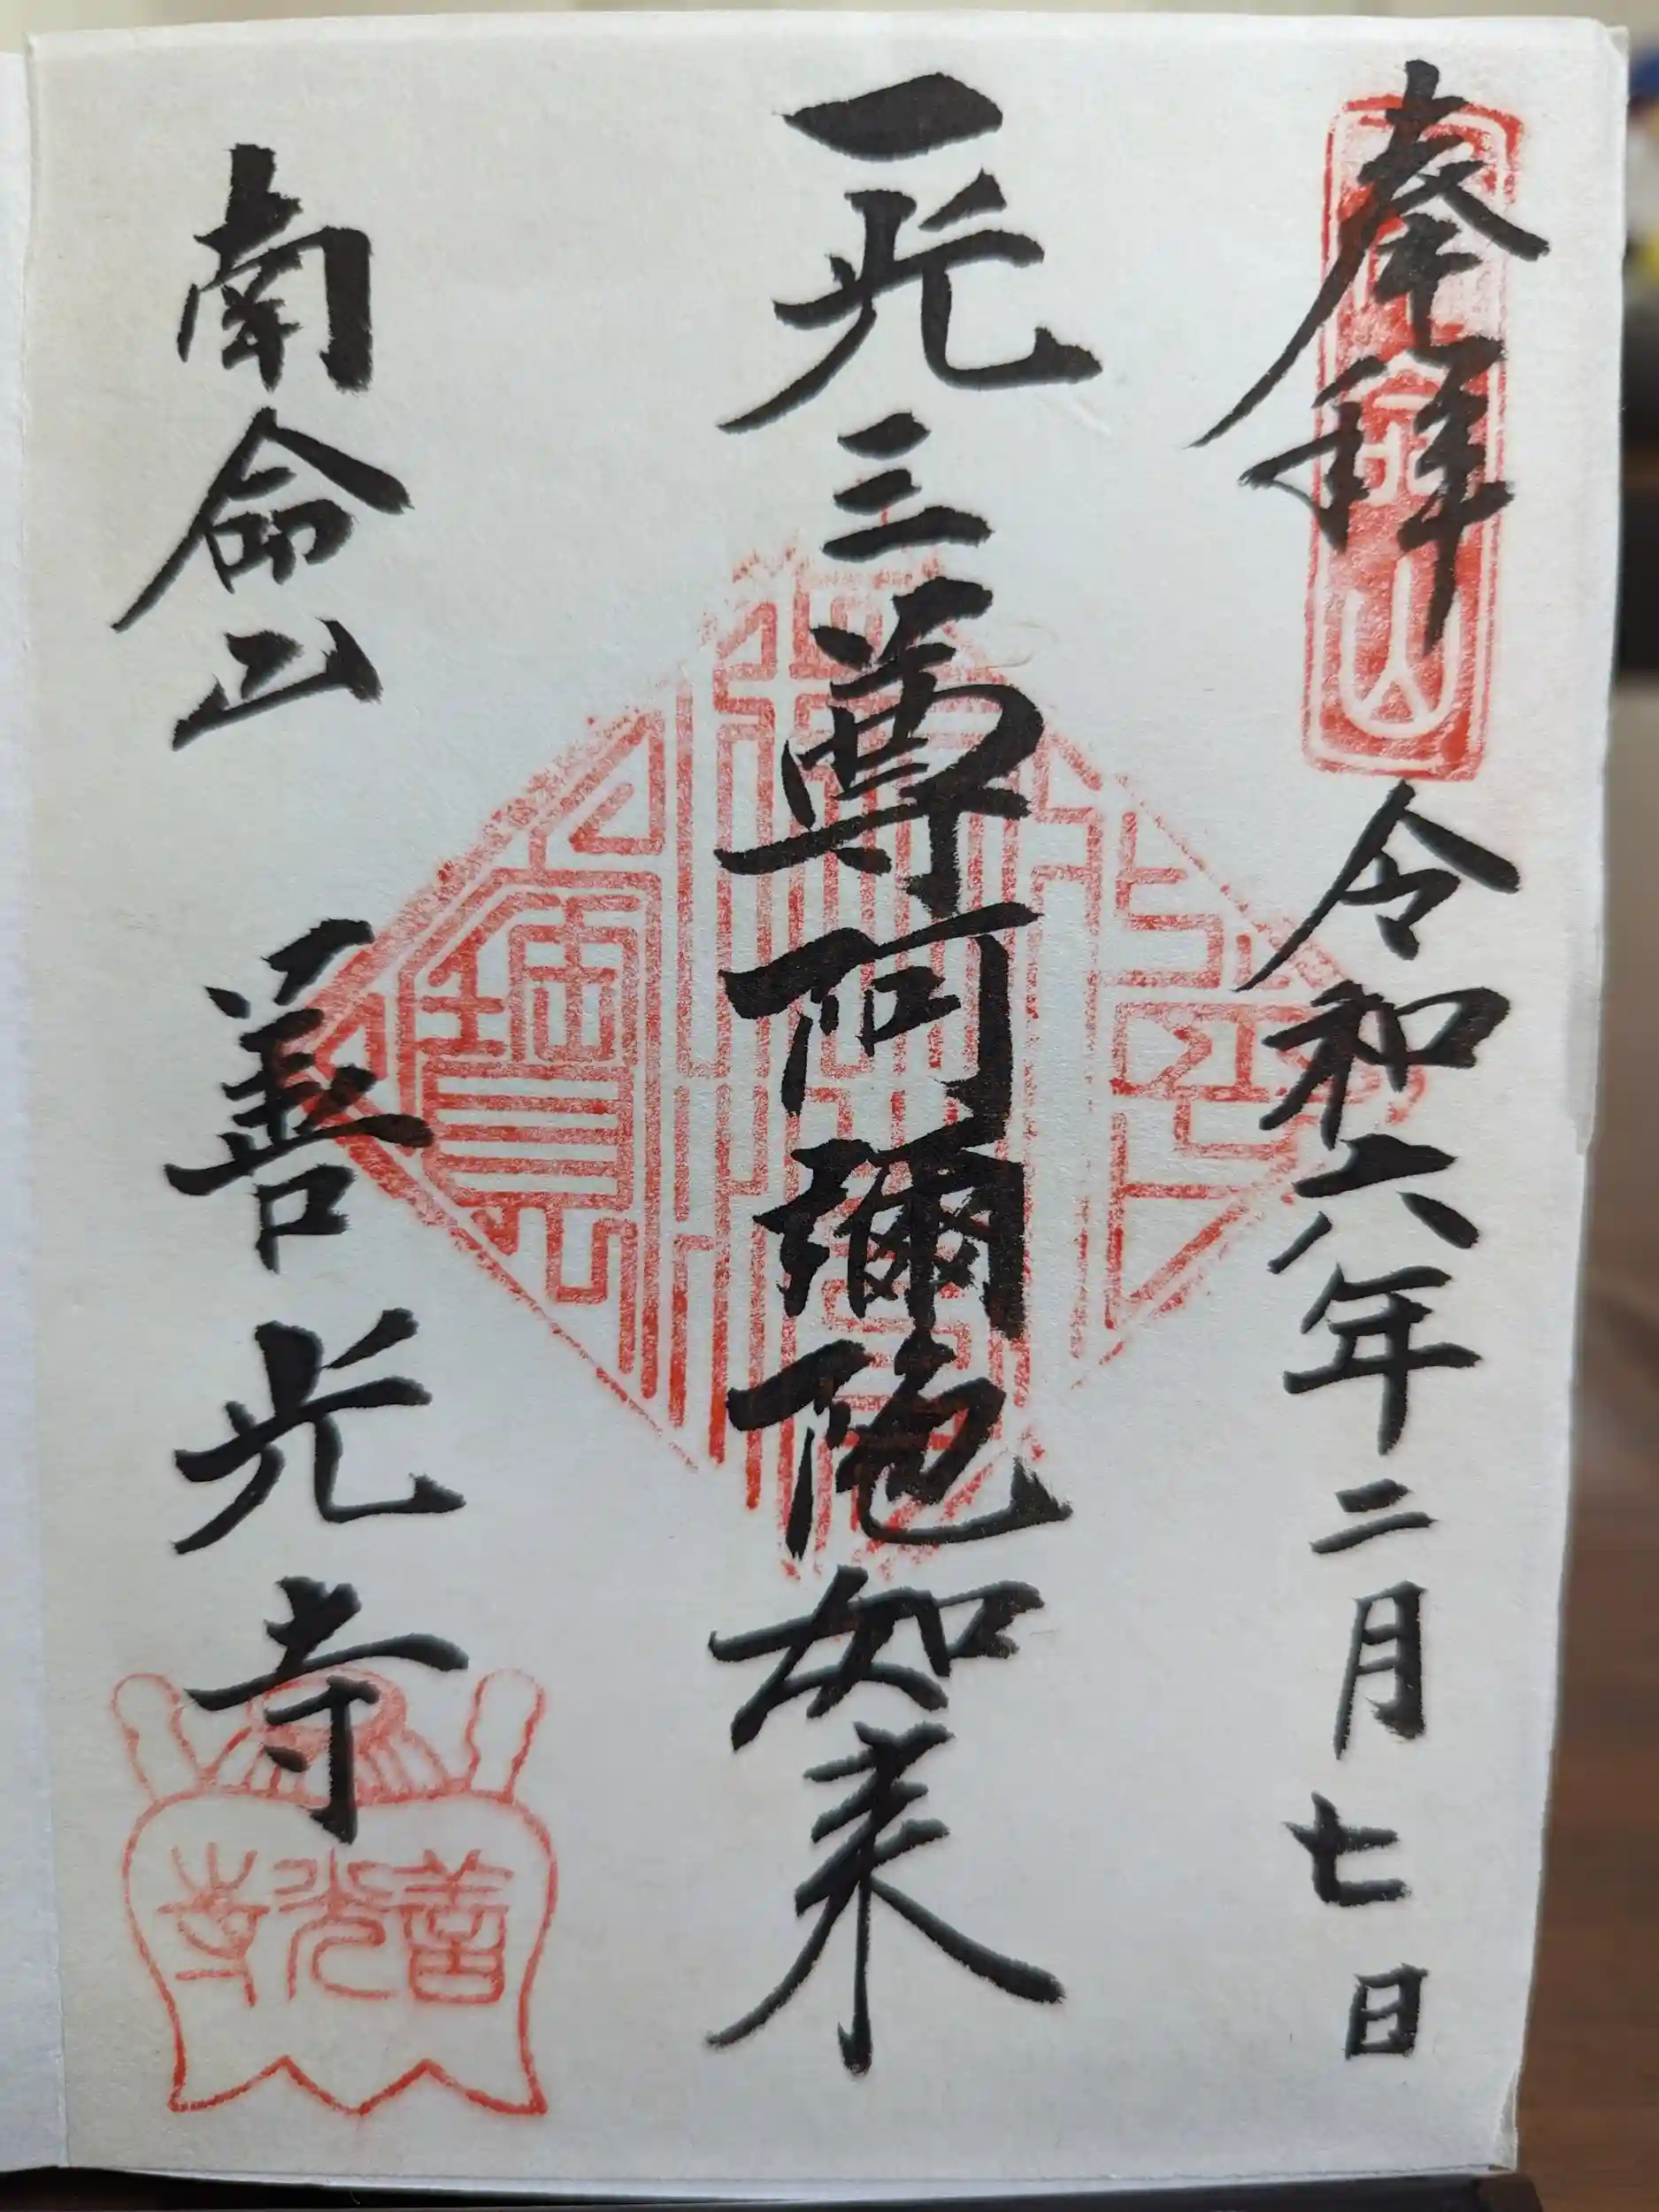 奉拝 令和六年二月七日
一光三尊阿彌陀如来
南命山 善光寺
善光寺